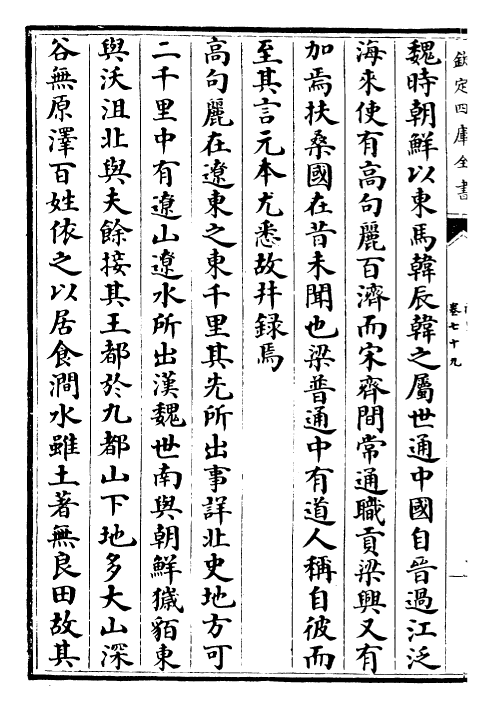 欽定四庫全書
卷七十九
魏時朝鮮以東馬韓辰韓之屬世通中國自晉過江泛
海來使有高句麗百濟而宋齊間常通職貢梁興又有
加焉扶桑國在昔未聞也梁普通中有道人稱自彼而
至其言元本尤悉故并録焉
高句麗在遼東之東千里其先所出事詳北史地方可
二千里中有遼山遼水所出漢魏世南與朝鮮獩貊東
與沃沮北與夫餘接其王都於九都山下地多大山深
谷無原澤百姓依之以居食澗水雖土著無良田故其